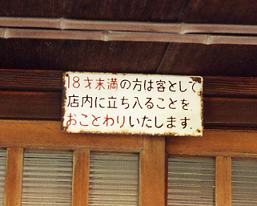 18才末満の方は客として
店内に立ち入ることを
おことわりいたします.